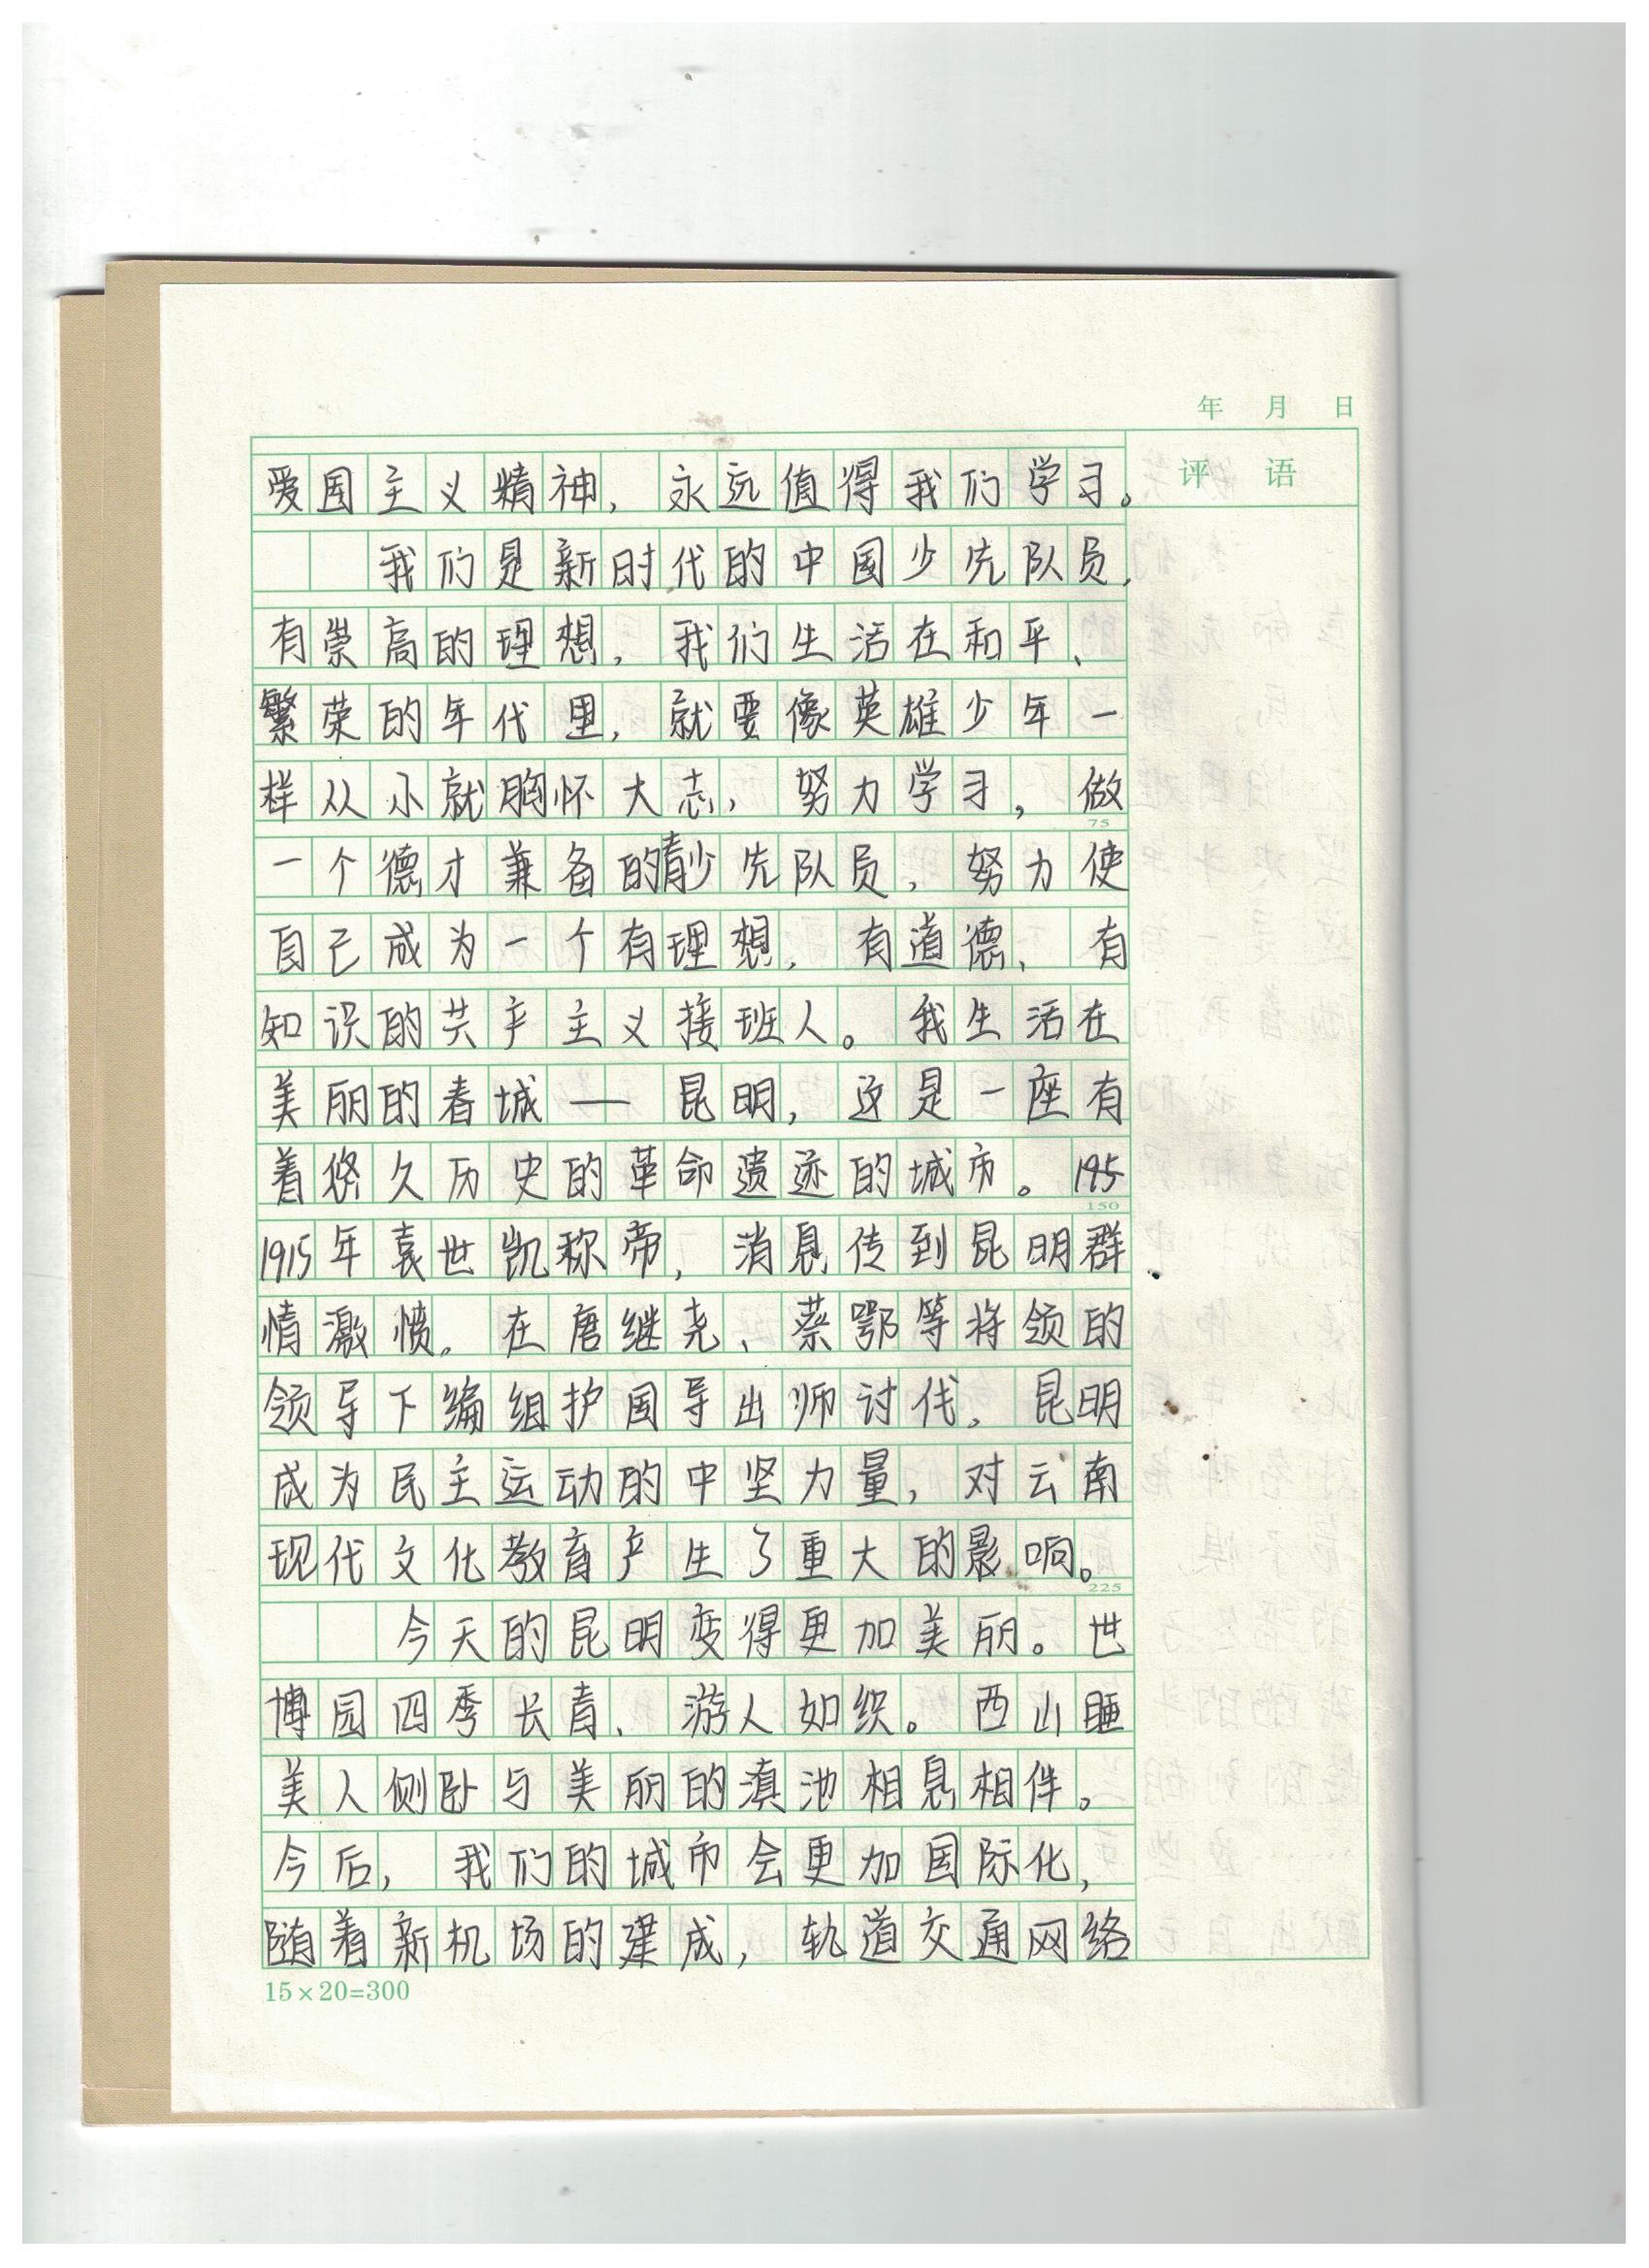 年 月 日
评 语
爱国主义精神，永远值得我们学习。
我们是新时代的中国少先队员，
有崇高的理想，我们生活在和平、
繁荣的年代里，就要像英雄少年一
样从小就胸怀大志，努力学习，做
75
一个德才兼备的青少先队员，努力使
自己成为一个有理想，有道德、有
知识的共产主义接班人。我生活在
美丽的春城——昆明，这是一座有
着悠久历史的革命遗迹的城市。195
150
1915年袁世凯称帝，消息传到昆明群
情激愤。在唐继尧、蔡鄂等将领的
领导下编组护国导出师讨伐，昆明
成为民主运动的中坚力量，对云南
现代文化教育产生了重大的影响。
225
今天的昆明变得更加美丽。世
博园四季长青、游人如织。西山睡
美人侧卧与美丽的滇池相息相伴。
今后，我们的城市会更加国际化，
随着新机场的建成，轨道交通网络
15×20=300